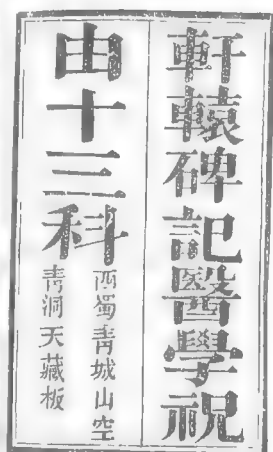 軒轅碑記醫學祝
由十三科
西蜀青城山空
青洞天藏板